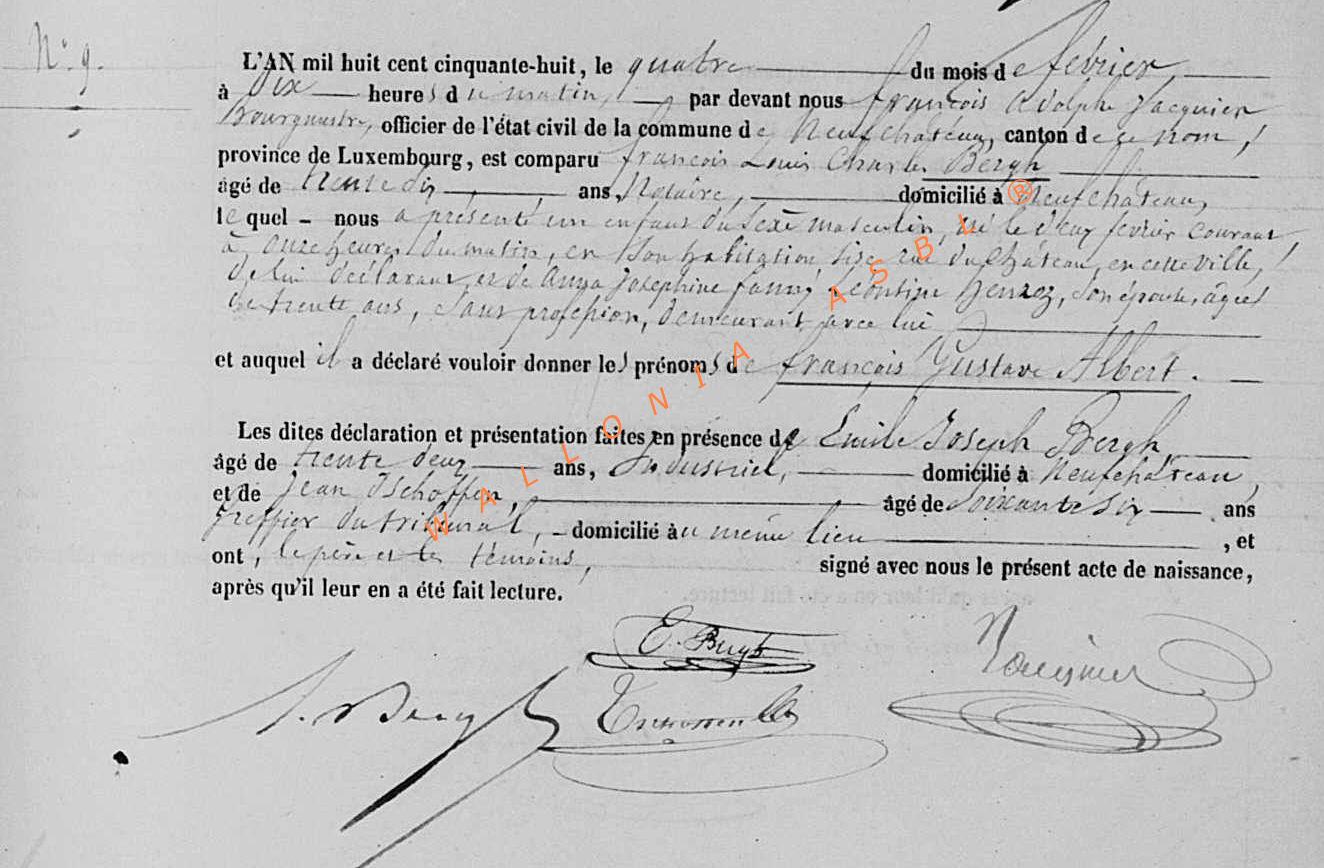 N° 9.
L'AN mil huit cent cinquante-huit, le quatre du mois de février
à dix heures du matin, par devant nous françois Adolphe Jacquier
Bourgmestre, officier de l'état civil de la commune de Neufchâteau, canton de ce nom,
province de Luxembourg, est comparu françois Louis Charles Bergh
âgé de trente six ans, Notaire, domicilié à Neufchâteau,
lequel - nous a présenté un enfant du sexe masculin, né le deux février courant,
à onze heures du matin, en son habitation sise rue du Château, en cette ville,
de lui déclarant, et de Anna Josephine fanny Léontine Henroz, son épouse, âgée
de trente ans, sans profession, demeurant avec lui
et auquel il a déclaré vouloir donner les prénoms de françois Gustave Albert.
Les dites déclaration et présentation faites en présence de Emile Joseph Bergh,
âgé de trente deux ans, Industriel, domicilié à Neufchâteau,
et de Jean Tschoffen, âgé de soixante six ans
greffier du tribunal, - domicilié au même lieu, et
ont, le père et les témoins, signé avec nous le présent acte de naissance,
après qu'il leur en a été fait lecture.
E. Bergh
Jacquier
Bergh
WALLONIA ASBL ®